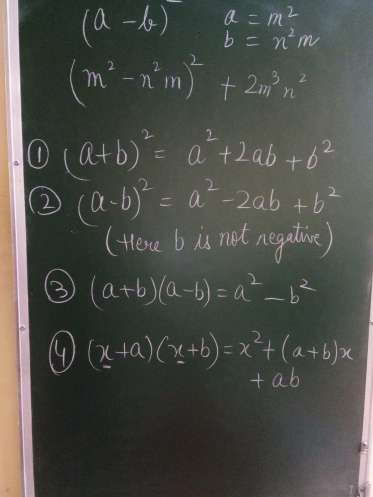 (a - b)    a = m²
b = n²m
(m² - n²m)² + 2m³n²
① (a+b)² = a² + 2ab + b²
② (a-b)² = a² - 2ab + b²
(Here b is not negative)
③ (a+b)(a-b) = a² - b²
④ (x+a)(x+b) = x² + (a+b)x
+ ab